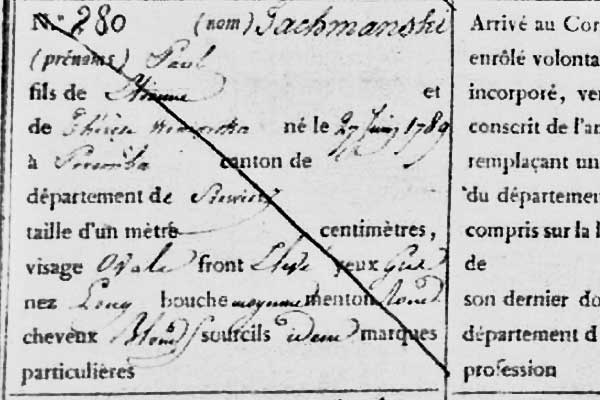 N.º 280 (nom) Jachmanski
(prénoms) Paul
fils de Etienne et
de Thérèse né le 27 Juin 1789
à canton de
département de
taille d'un mètre centimètres,
visage Ovale front Elevé yeux Gris
nez Long bouche moyenne menton Rond
cheveux Blond sourcils idem marques
particulières
Arrivé au Cor
enrôlé volonta
incorporé, ve
conscrit de l'ar
remplaçant un
du départemen
compris sur la l
de
son dernier do
département d
profession